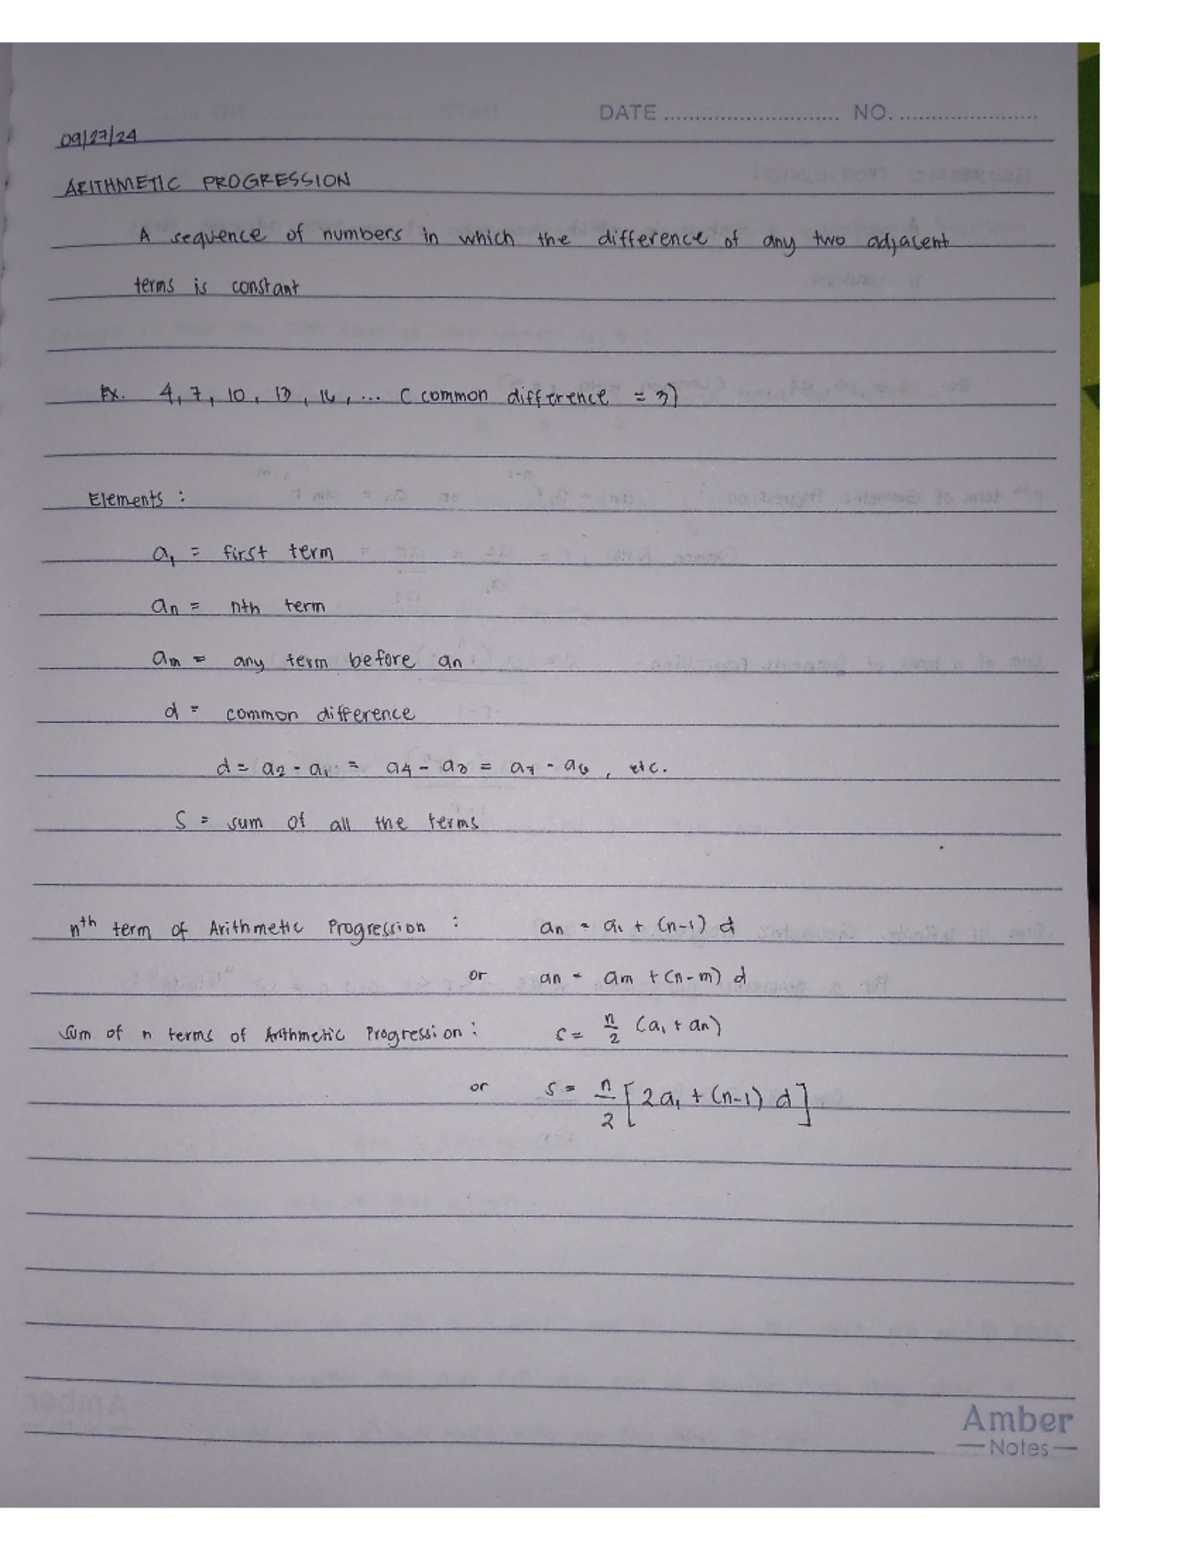 DATE ............................ NO. .......................
09/27/24
ARITHMETIC PROGRESSION
A sequence of numbers in which the difference of any two adjacent
terms is constant
Ex. 4, 7, 10, 13, 16, ... (common difference = 3)
Elements :
a₁ = first term
an = nth term
am = any term before an
d = common difference
d = a₂ - a₁ = a₄ - a₃ = a₇ - a₆ , etc.
S = sum of all the terms
nᵗʰ term of Arithmetic Progression : an = a₁ + (n-1) d
or an = am + (n-m) d
sum of n terms of Arithmetic Progression : S = n/2 (a₁ + an)
or S = n/2 [2a₁ + (n-1) d]
Amber
Notes